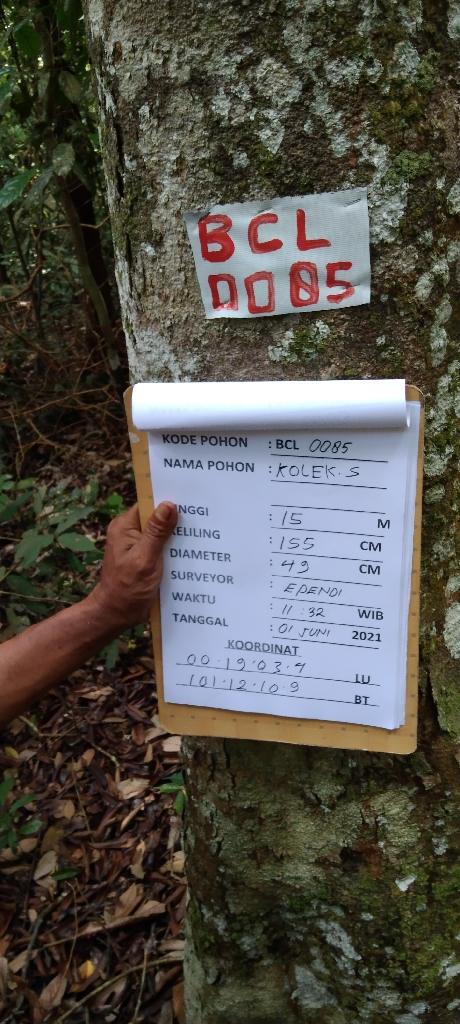 BCL
0085
KODE POHON : BCL 0085
NAMA POHON : KOLEK.S
INGGI : 15 M
KELILING : 155 CM
DIAMETER : 49 CM
SURVEYOR : EPENDI
WAKTU : 11:32 WIB
TANGGAL : 01 JUNI 2021
KOORDINAT
00.19.03.4 LU
101.12.10.9 BT